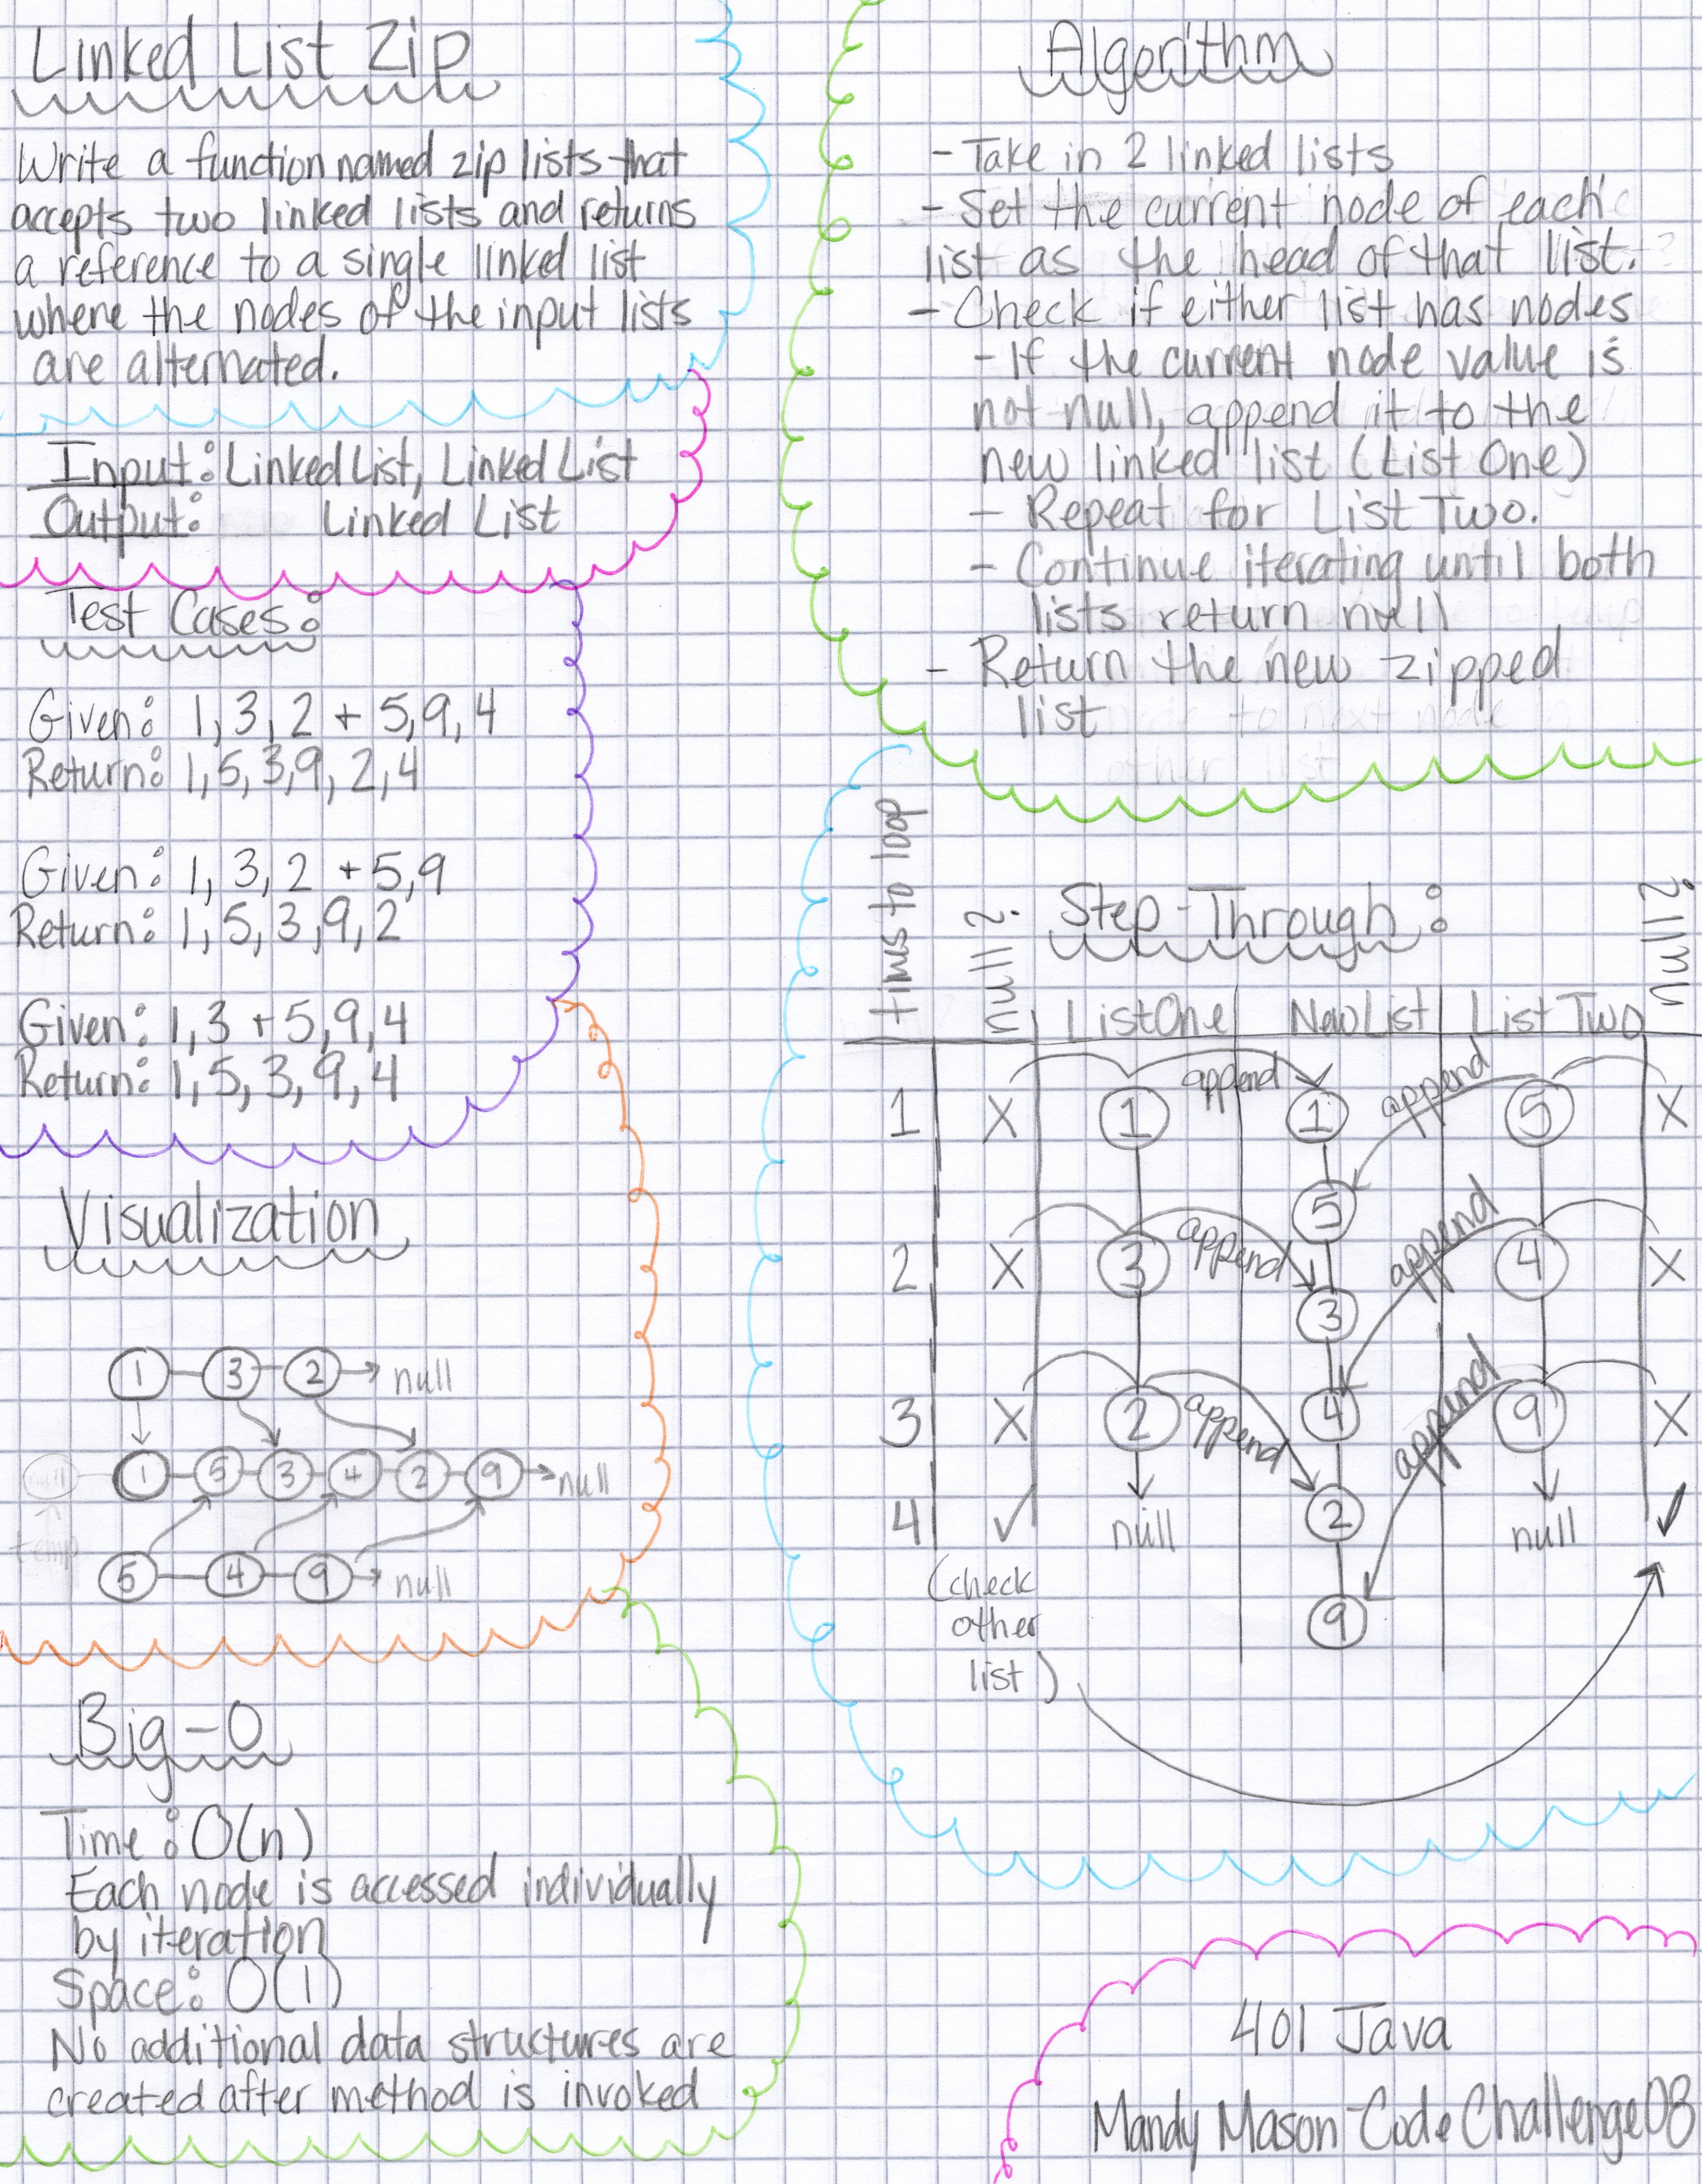 Linked List Zip
Write a function named zip lists that
accepts two linked lists and returns
a reference to a single linked list
where the nodes of the input lists
are alternated.
Input: Linked List, Linked List
Output: Linked List
Test Cases:
Given: 1, 3, 2 + 5, 9, 4
Return: 1, 5, 3, 9, 2, 4
Given: 1, 3, 2 + 5, 9
Return: 1, 5, 3, 9, 2
Given: 1, 3 + 5, 9, 4
Return: 1, 5, 3, 9, 4
Visualization
1 3 2 null
null 1 5 3 4 2 9 null
temp
5 4 9 null
Big-O
Time: O(n)
Each node is accessed individually
by iteration
Space: O(1)
No additional data structures are
created after method is invoked
Algorithm
- Take in 2 linked lists
- Set the current node of each
list as the head of that list.
- Check if either list has nodes
- If the current node value is
not null, append it to the
new linked list (List One)
- Repeat for List Two.
- Continue iterating until both
lists return null
- Return the new zipped
list
other list
Step-Through:
times to loop null? List One New List List Two null?
append append
1 X 1 1 5 X
5
append append
2 X 3 4 X
3
append append
3 X 2 4 9 X
4 ✓ null 2 null ✓
(check
other 9
list)
401 Java
Mandy Mason - Code Challenge 08